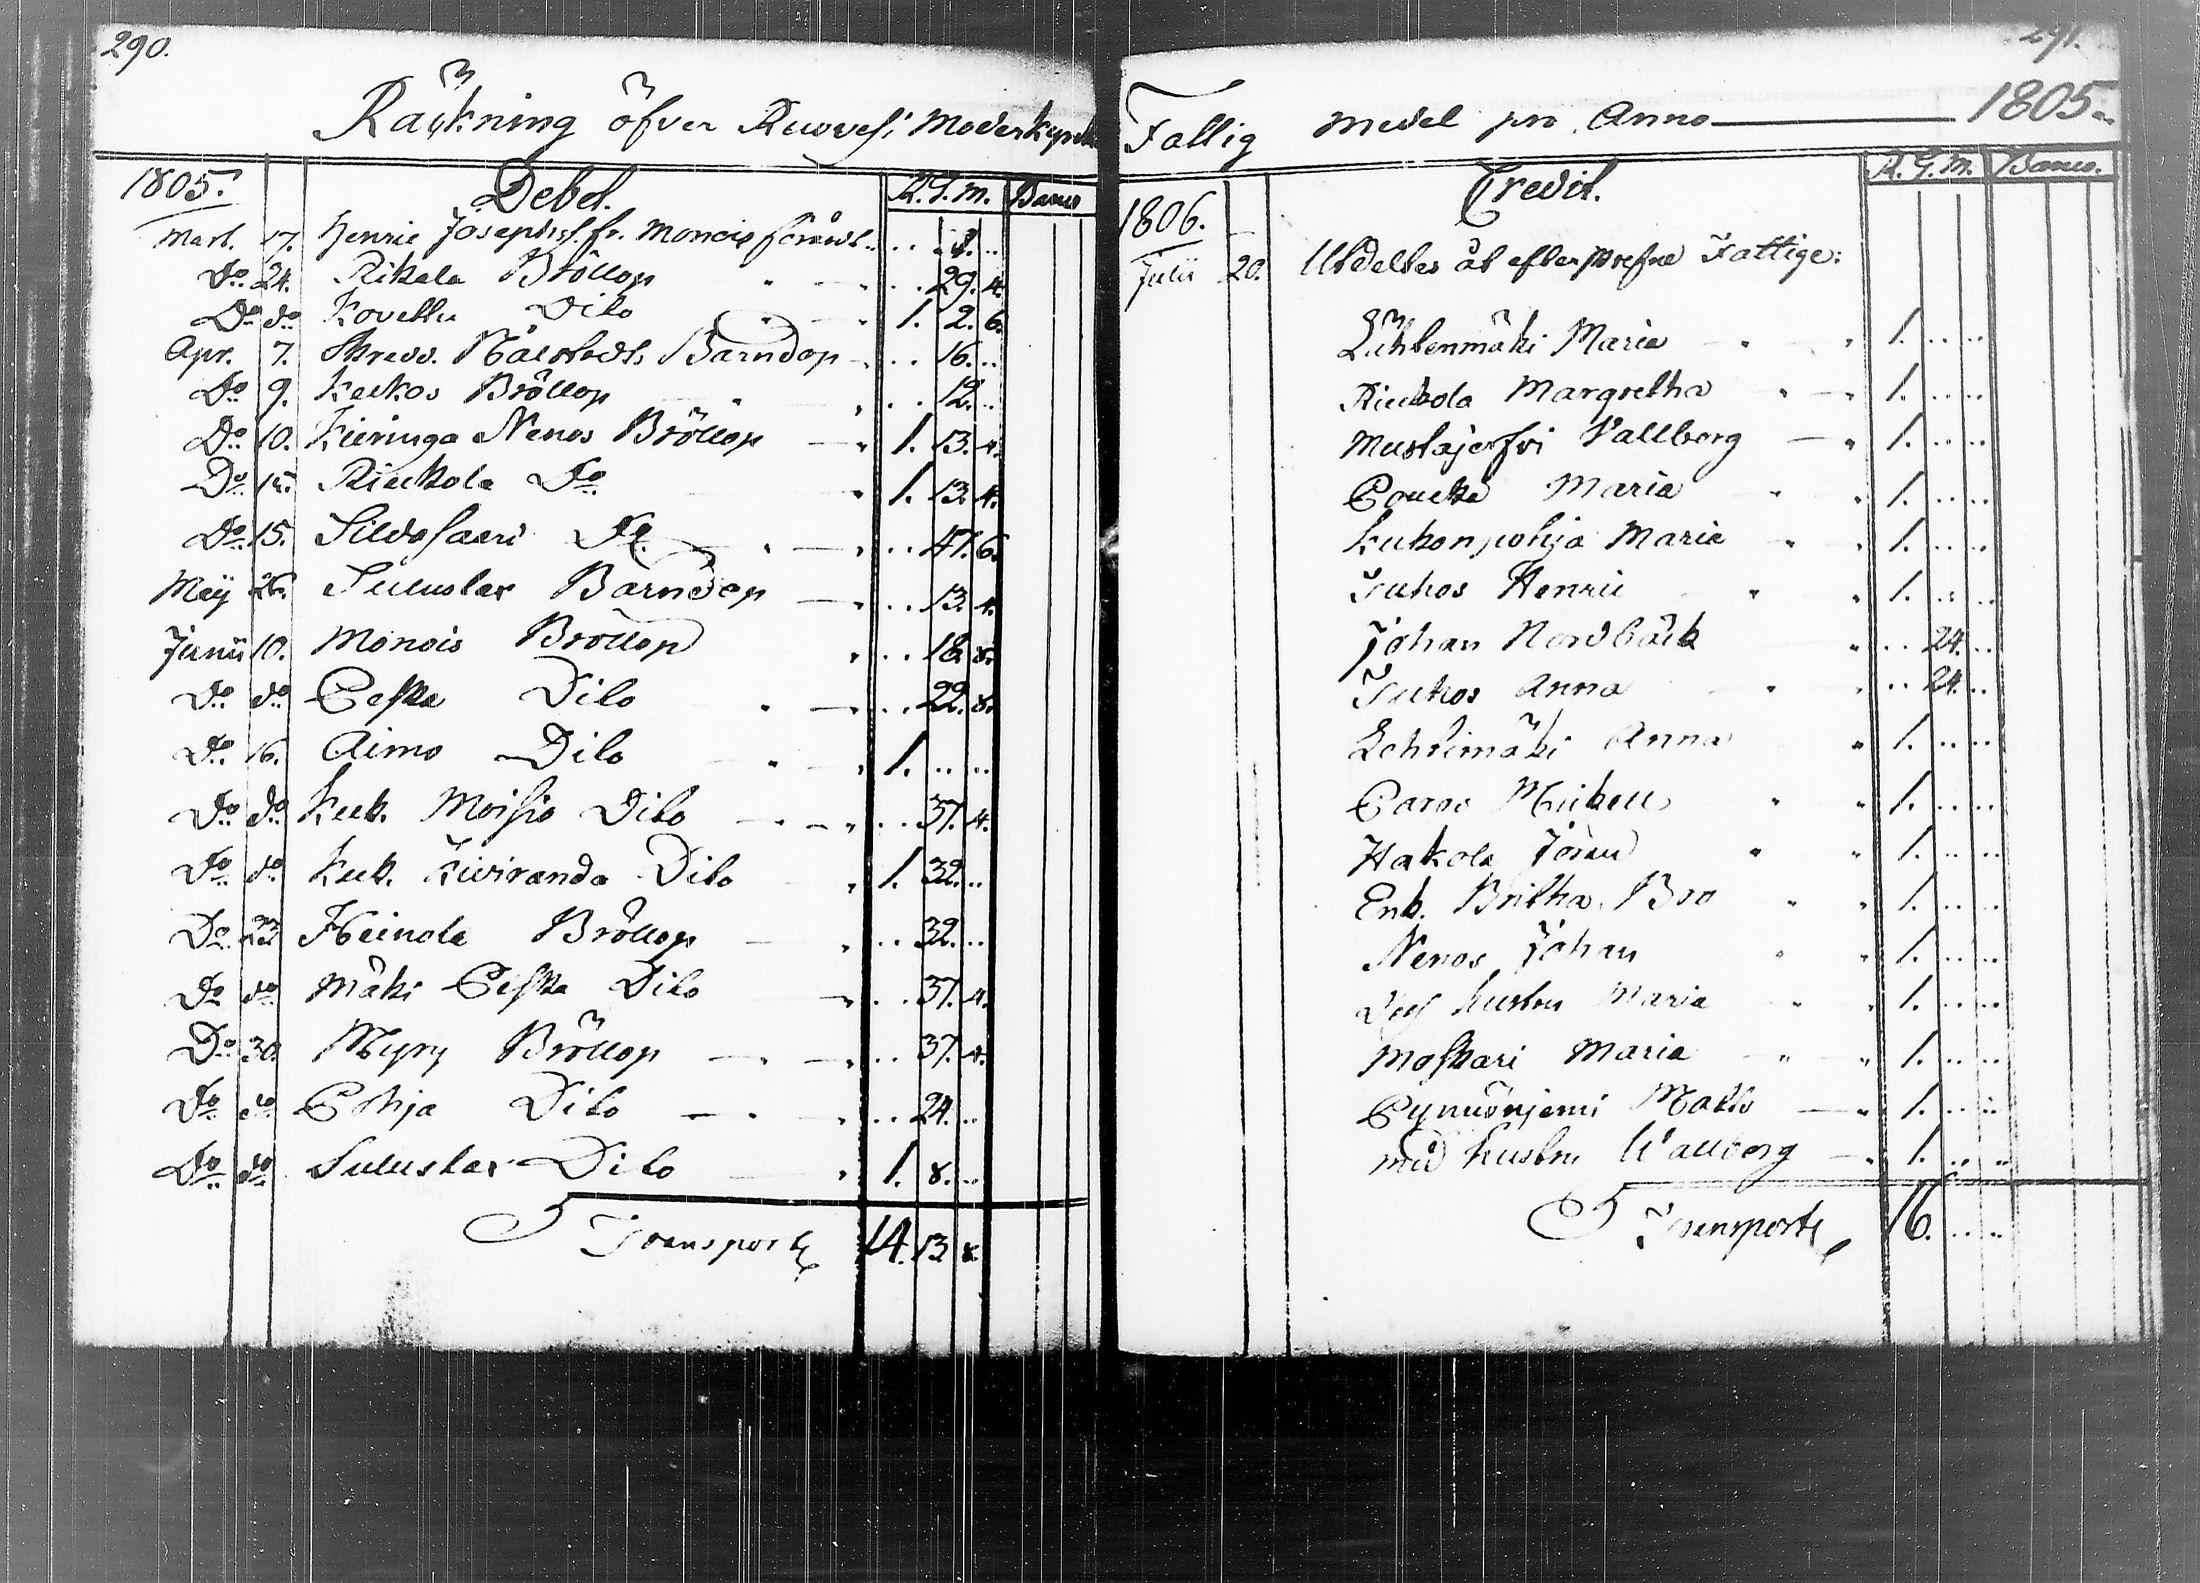 290.
Räkning öfver Ruovesi Moderkyrko
1805.
Debet.
R. G. m. Banco
Mart. 17. Henric Josephss. fr. Monois .. 8. ..
Do 24. Rikala Bröllop .. 29. 4.
Do do Kovettu Dito 1. 2. 6.
Apr. 7. Skredd. Barndop .. 16. ..
Do 9. Keckos Bröllop .. 12. ..
Do 10. Kieringa Nenos Bröllop 1. 13. 4.
Do Riuckola Do 1. 13. 4.
Do 15. Sildosaari Do .. 47. 6.
Maij 26. Suluslax Barndop .. 13. 4.
Junii 10. Monois Bröllop .. 18. 8.
Do do Peska Dito .. 22. 8.
Do 16. Aimo Dito 1. .. ..
Do do Kuk. Moisio Dito .. 37. 4.
Do do Kuk. Kiviranda Dito 1. 32. ..
Do 23 Heinola Bröllop .. 32. ..
Do do Mäki Peska Dito .. 37. 4.
Do 30. Myry Bröllop .. 37. 4.
Do do Pohja Dito .. 24. ..
Do do Suluslax Dito 1. 8. ..
Transport 14. 13 8.
291.
Fattig medel pro Anno 1805.
1806.
Credit.
R. G. m. Banco.
Julii 20. Utdeltes åt efterskrefne Fattige:
Lähtenmäki Maria 1. .. ..
Riuckola Margretha 1. .. ..
Mustajerfvi Vallborg 1. .. ..
Poucka Maria 1. .. ..
Kukonpohja Maria 1. .. ..
Juhos Henric 1. .. ..
Johan Nordbäck .. 24. ..
Juhos Anna .. 24. ..
Lehtimäki Anna 1. .. ..
Parno Mickell 1. .. ..
Hakola Jöran 1. .. ..
Enk. Britha Bro 1. .. ..
Nenos Johan 1. .. ..
hustru Maria 1. .. ..
Moskari Maria 1. .. ..
Pynnönjemi Matts 1. .. ..
med hustru Wallborg 1. .. ..
Transport 16. .. ..